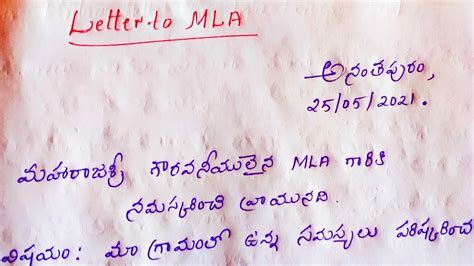 Letter to MLA
అనంతపురం,
25/05/2021.
మహారాజశ్రీ గౌరవనీయులైన MLA గారికి
నమస్కరించి వ్రాయునది.
విషయం: మా గ్రామంలో ఉన్న సమస్యలు పరిష్కరించ